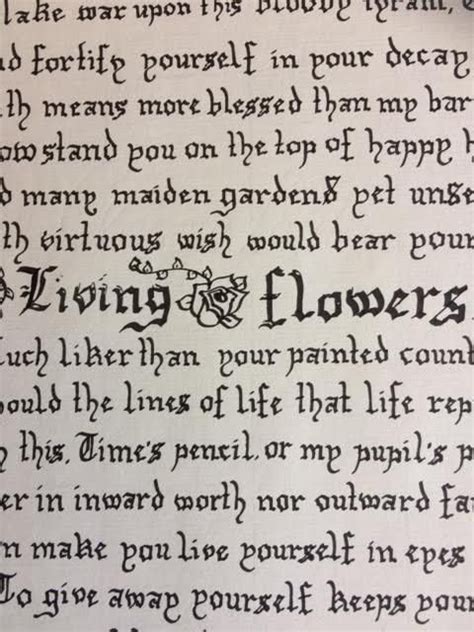 ake war upon this bloody tyrant,
d fortify yourself in your decay
th means more blessed than my bar
ow stand you on the top of happy h
d many maiden gardens yet unse
th virtuous wish would bear your
Living flowers,
uch liker than your painted count
ould the lines of life that life rep
this, Time's pencil, or my pupil's p
er in inward worth nor outward fa
n make you live yourself in eyes
To give away yourself keeps your